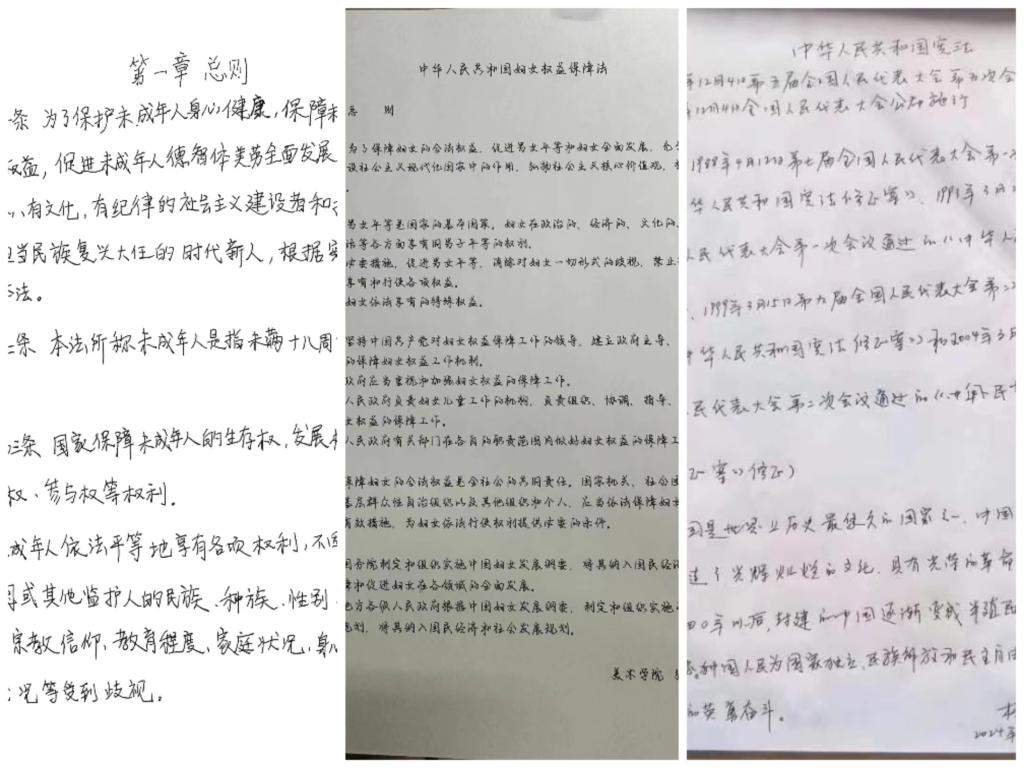 第一章 总则
条 为了保护未成年人身心健康,保障未
权益,促进未成年人德智体美劳全面发展
有文化,有纪律的社会主义建设者和
担当民族复兴大任的时代新人,根据宪
法。
二条 本法所称未成年人是指未满十八周
三条 国家保障未成年人的生存权,发展
权、参与权等权利。
成年人依法平等地享有各项权利,不因
或其他监护人的民族、种族、性别
宗教信仰,教育程度,家庭状况,身
况等受到歧视。
中华人民共和国妇女权益保障法
总 则
为了保障妇女的合法权益,促进男女平等和妇女全面发展,充
设社会主义现代化国家中的作用,弘扬社会主义核心价值观,
男女平等是国家的基本国策。妇女在政治的、经济的、文化的、
活等各方面享有同男子平等的权利。
必要措施,促进男女平等,消除对妇女一切形式的歧视,禁止
享有和行使各项权益。
妇女依法享有的特殊权益。
坚持中国共产党对妇女权益保障工作的领导,建立政府主导、
的保障妇女权益工作机制。
政府应当重视和加强妇女权益的保障工作。
人民政府负责妇女儿童工作的机构,负责组织、协调、指导、
女权益的保障工作。
人民政府有关部门在各自的职责范围内做好妇女权益的保障工
障妇女的合法权益是全社会的共同责任。国家机关、社会团
基层群众性自治组织以及其他组织和个人,应当依法保障妇女
有效措施,为妇女依法行使权利提供必要的条件。
国务院制定和组织实施中国妇女发展纲要,将其纳入国民经济
障和促进妇女在各领域的全面发展。
地方各级人民政府根据中国妇女发展纲要,制定和组织实施
规划,将其纳入国民经济和社会发展规划。
美术学院
中华人民共和国宪法
年12月4日第五届全国人民代表大会第五次会
年12月4日全国人民代表大会公布施行
1988年4月12日第七届全国人民代表大会第一次
华人民共和国宪法修正案》、1993年3月2
人民代表大会第一次会议通过的《中华人
、1999年3月15日第九届全国人民代表大会第二次
中华人民共和国宪法修正案》和2004年3月
人民代表大会第二次会议通过的《中华人民
正案》修正)
国是世界上历史最悠久的国家之一、中国
造了光辉灿烂的文化、具有光荣的革命
四〇年以后,封建的中国逐渐变成半殖民
中国人民为国家独立、民族解放和民主自由
的英勇奋斗。
2024年